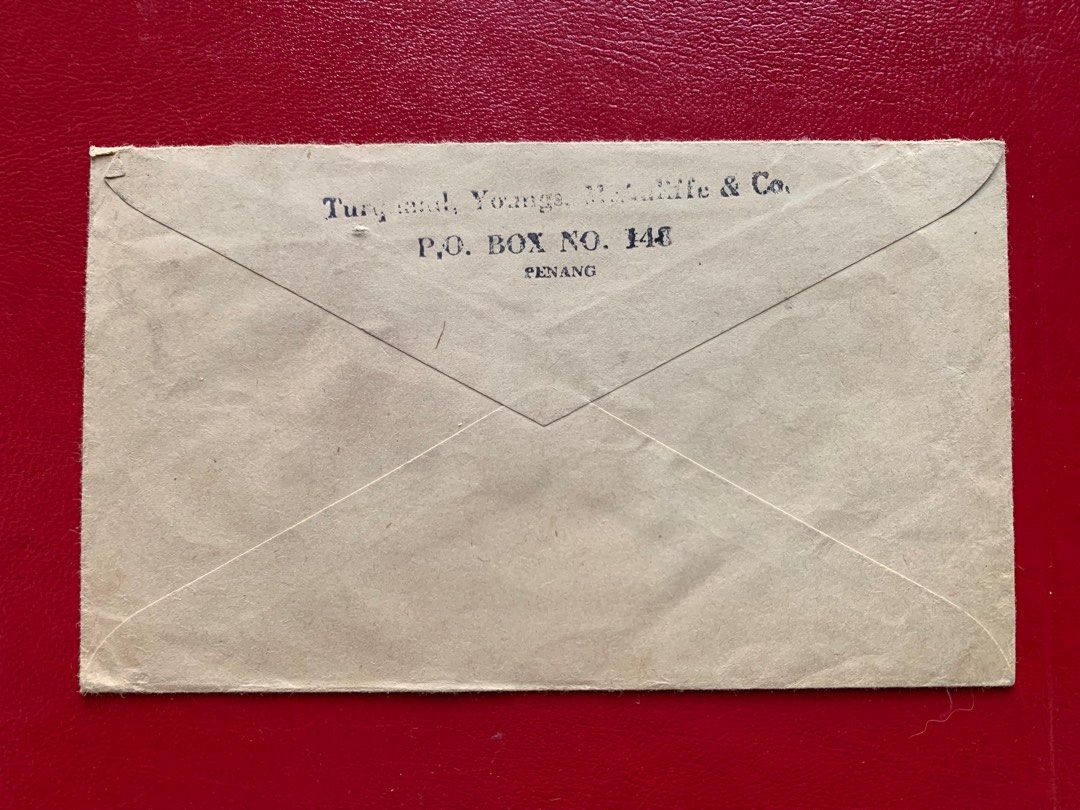 Turquand, Youngs, McAuliffe & Co.
P.O. BOX NO. 148
PENANG